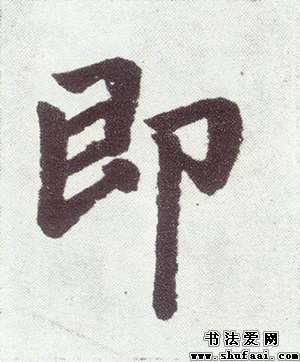 即
书法爱网
www.shufaai.com